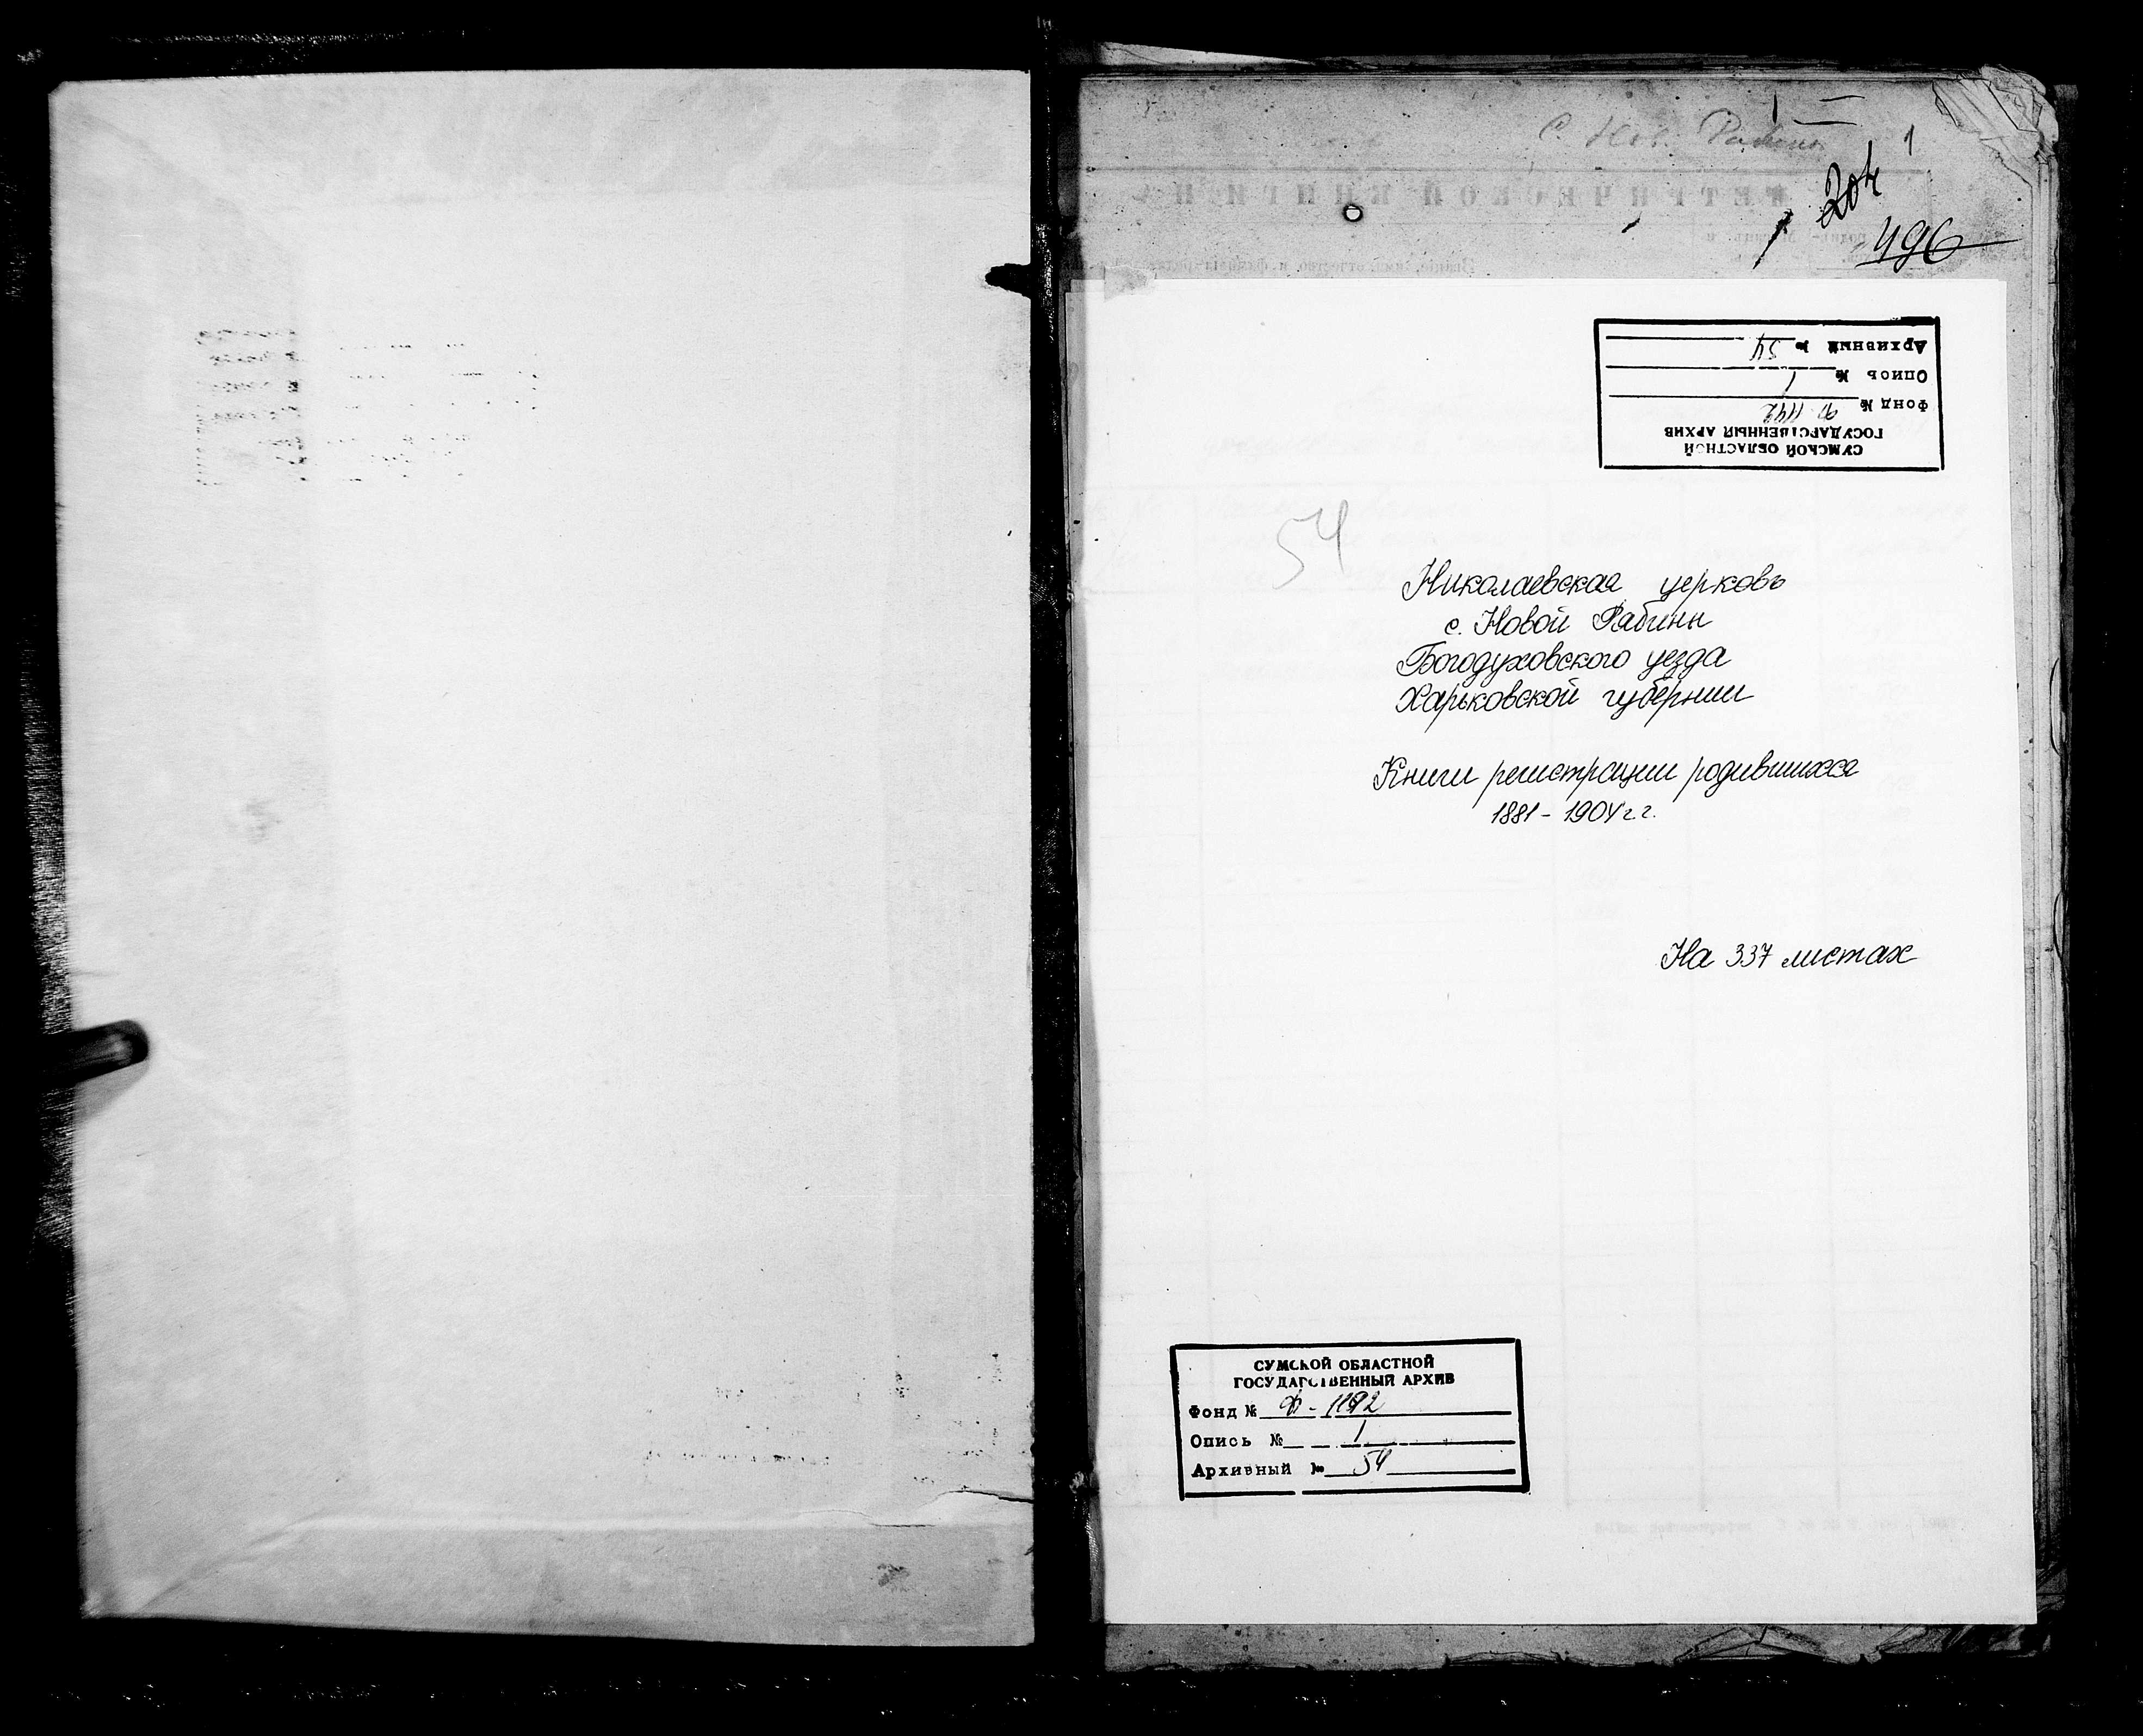 с. Нов. Рабины
1
204
496
СУМСКОЙ ОБЛАСТНОЙ
ГОСУДАРСТВЕННЫЙ АРХИВ
Фонд № Ф. 1192
Опись № 1
Архивный № 54
54
Николаевская церковь
с. Новой Рабины
Богодуховского уезда
Харьковской губернии
Книги регистрации родившихся
1881 - 1904 г.г.
На 337 листах
СУМСКОЙ ОБЛАСТНОЙ
ГОСУДАРСТВЕННЫЙ АРХИВ
Фонд № Ф - 1192
Опись № 1
Архивный № 54